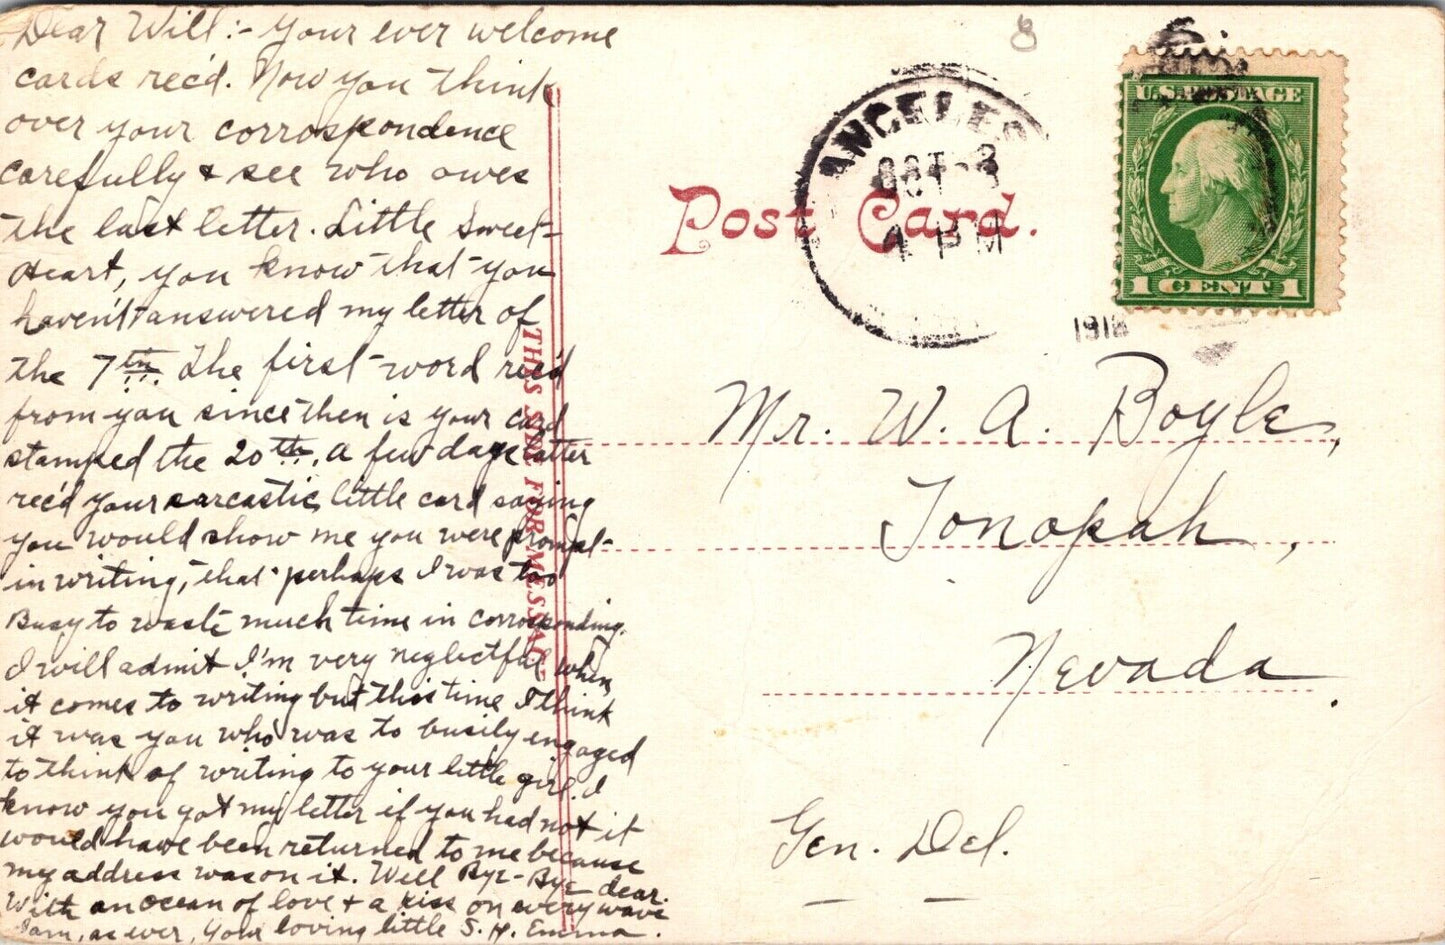 Dear Will:- Your ever welcome
cards rec'd. Now you think
over your corrospondence
carefully & see who owes
the last letter. Little Sweet-
Heart, you know that you
haven't answered my letter of
the 7th. The first word rec'd
from you since then is your card
stamped the 20th. A few days latter
rec'd your sarcastic little card saying
you would show me you were prompt
in writing, that perhaps I was too
Busy to waste much time in corrosponding.
I will admit I'm very neglectful when
it comes to writing but this time I think
it was you who was to busily engaged
to think of writing to your little girl. I
know you got my letter if you had not it
would have been returned to me because
my address was on it. Well Bye-Bye dear.
With an ocean of love & a kiss on every wave
I am, as ever, your loving little S. H. Emma.
THIS SIDE FOR MESSAGE
8
Post Card.
ANGELES
OCT
4 PM
1918
U.S. POSTAGE
1 CENT 1
Mr. W. A. Boyle,
Tonopah,
Nevada.
Gen. Del.